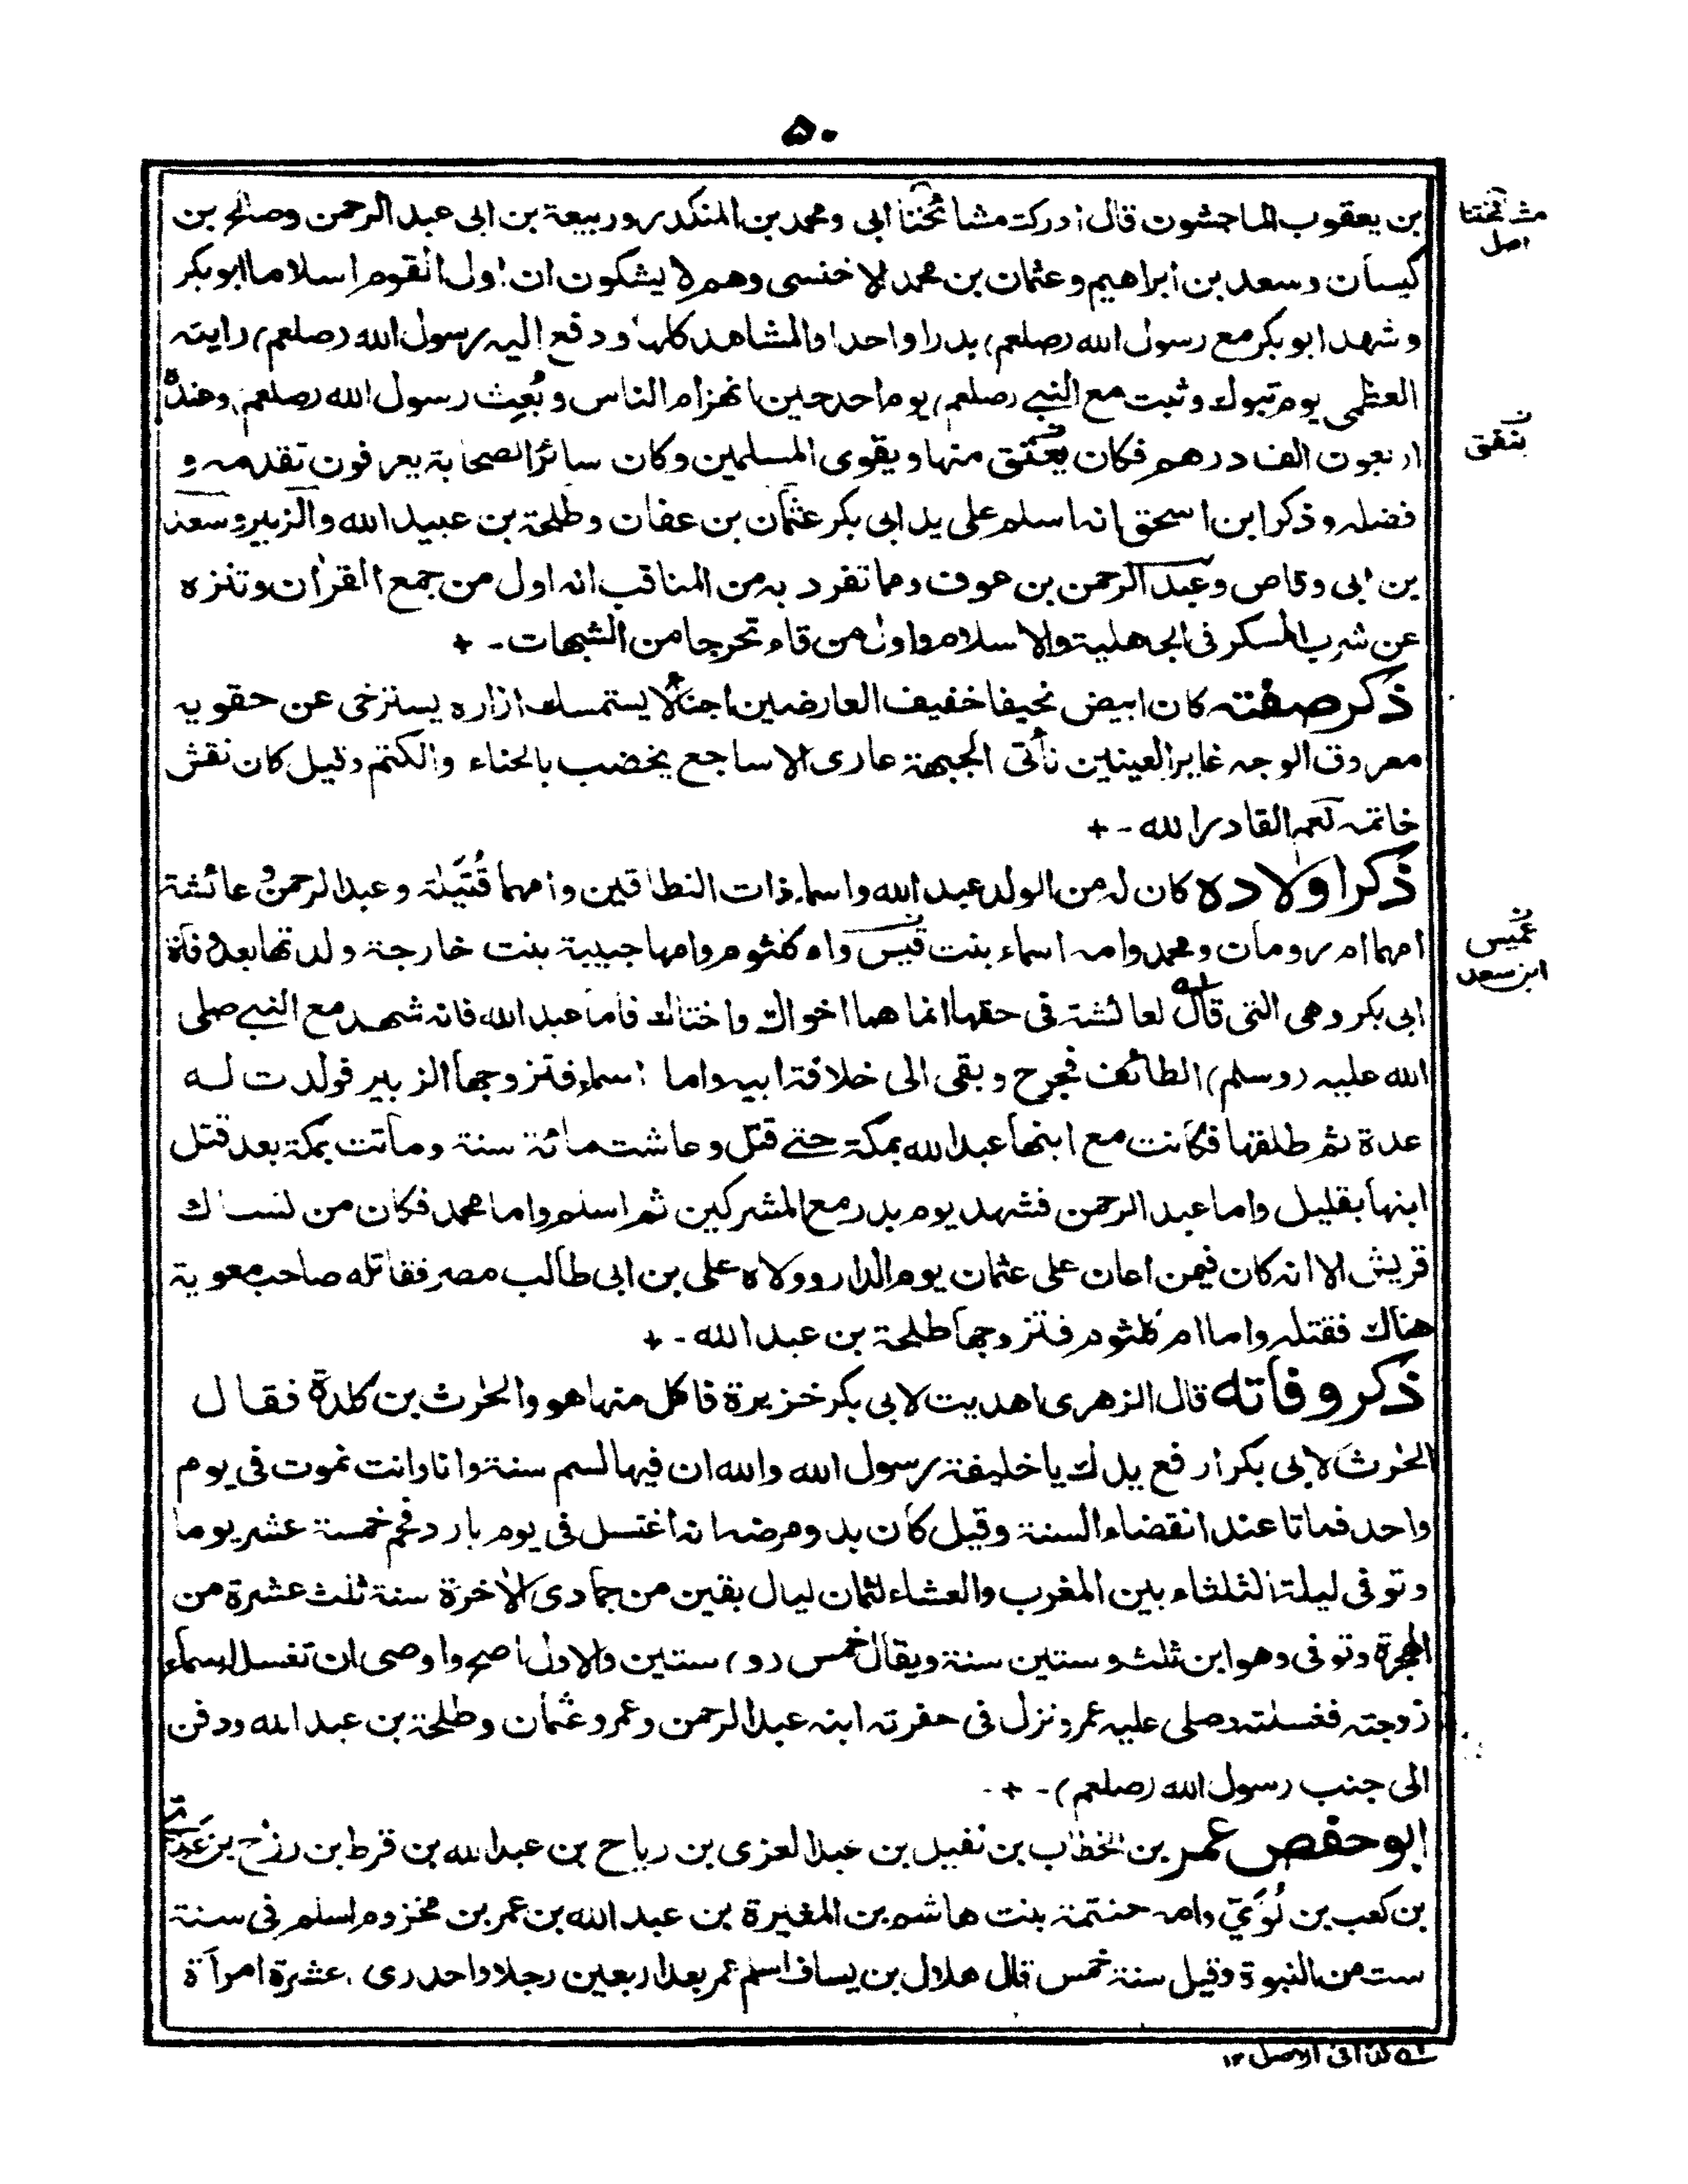 ۵۰
بن يعقوب الماجشون قال ادركت مشائخنا ابى ومحمد بن المنكدر وربيعة بن ابى عبد الرحمن وصالح بن
كيسان وسعد بن ابراهيم وعثمان بن محمد الاخنسى وهم لا يشكون ان اول القوم اسلاما ابوبكر
وشهد ابوبكر مع رسول الله (صلعم) بدرا واحدا والمشاهد كلها ودفع اليه رسول الله (صلعم) رايته
العظمى يوم تبوك وثبت مع النبي (صلعم) يوم احد حين انهزام الناس وبُعِث رسول الله (صلعم) وعنده
اربعون الف درهم فكان يعتق منها ويقوى المسلمين وكان سائر الصحابة يعرفون تقدمه و
فضله وذكر ابن اسحق انه اسلم على يد ابى بكر عثمان بن عفان وطلحة بن عبيد الله والزبير وسعد
بن ابى وقاص وعبد الرحمن بن عوف ومما تفرد به من المناقب انه اول من جمع القرأن وتنزه
عن شرب المسكر فى الجاهلية والاسلام واول من قاء تحرجا من الشبهات - +
ذكر صفته كان ابيض نحيفا خفيف العارضين اجنأ لا يستمسك ازاره يسترخى عن حقويه
معروق الوجه غاير العينين نأتى الجبهة عارى الاساجع يخضب بالحناء والكتم وقيل كان نقش
خاتمه نعم القادر الله - +
ذكر اولاده كان له من الولد عبد الله واسماء ذات النطاقين وامهما قُتَيلة وعبد الرحمن وعائشة
امهما ام رومان ومحمد وامه اسماء بنت قيس وام كلثوم وامها حبيبة بنت خارجة ولدتها بعد وفاة
ابى بكر وهى التى قال له لعائشة فى حقها انما هما اخواك واختاك فاما عبد الله فانه شهد مع النبي صلى
الله عليه (وسلم) الطائف فجرح وبقى الى خلافة ابيه واما اسماء فتزوجها الزبير فولدت له
عدة ثم طلقها فكانت مع ابنها عبد الله بمكة حتى قتل وعاشت مائة سنة وماتت بمكة بعد قتل
ابنها بقليل واما عبد الرحمن فشهد يوم بدر مع المشركين ثم اسلم واما محمد فكان من نساك
قريش الا انه كان فيمن اعان على عثمان يوم الدار وولاه على بن ابى طالب مصر فقاتله صاحب معوية
هناك فقتله واما ام كلثوم فتزوجها طلحة بن عبد الله - +
ذكر وفاته قال الزهرى اهديت لابى بكر خزيرة فاكل منها هو والحٰرث بن كلدة فقال
الحٰرث لابى بكر ارفع يدك يا خليفة رسول الله والله ان فيها لسم سنة وانا وانت نموت فى يوم
واحد فماتا عند انقضاء السنة وقيل كان بدو مرضه انه اغتسل فى يوم بارد فحم خمسة عشر يوما
وتوفى ليلة الثلثاء بين المغرب والعشاء لثمان ليال بقين من جمادى الأخرة سنة ثلث عشرة من
الهجرة وتوفى وهو ابن ثلث وستين سنة ويقال خمس (و) ستين والاول اصح واوصى ان تغسله اسماء
زوجته فغسلته وصلى عليه عمر ونزل فى حفرته ابنه عبد الرحمن وعمر وعثمان وطلحة بن عبد الله ودفن
الى جنب رسول الله (صلعم) - + -
ابو حفص عمر بن الخطاب بن نفيل بن عبد العزى بن رباح بن عبد الله بن قرط بن رزاح بن عدى
بن كعب بن لُوَىّ وامه حنتمة بنت هاشم بن المغيرة بن عبد الله بن عمر بن مخزوم اسلم فى سنة
ست من النبوة وقيل سنة خمس قال هلال بن يساف اسلم عمر بعد اربعين رجلا واحدى عشرة امرأة
مشائختنا
اصل
ن
ينفق
ن
عميس
ابن سعد
له كذا فى الاصل ۱۲